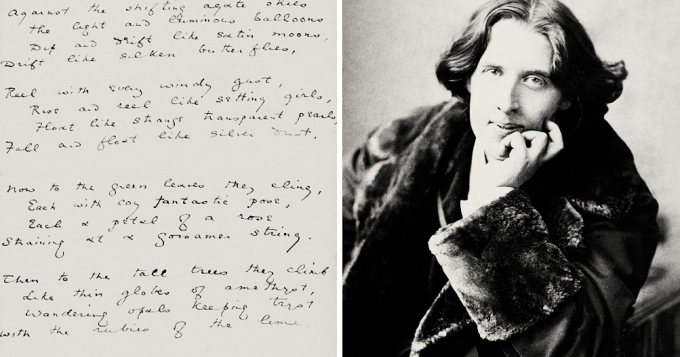 Against the shifting agate skies
the light and luminous balloons
Dip and drift like satin moons,
Drift like silken butterflies,
Reel with every windy gust,
Rise and reel like girls,
Float like strange transparent pearls,
Fall and float like silver dust.
Now to the green leaves they cling,
Each with coy fantastic pose,
Each a petal of a rose
Straining at a gossamer string.
Then to the tall trees they climb
Like thin globes of amethyst,
Wandering opals keeping tryst
With the rubies of the lime.